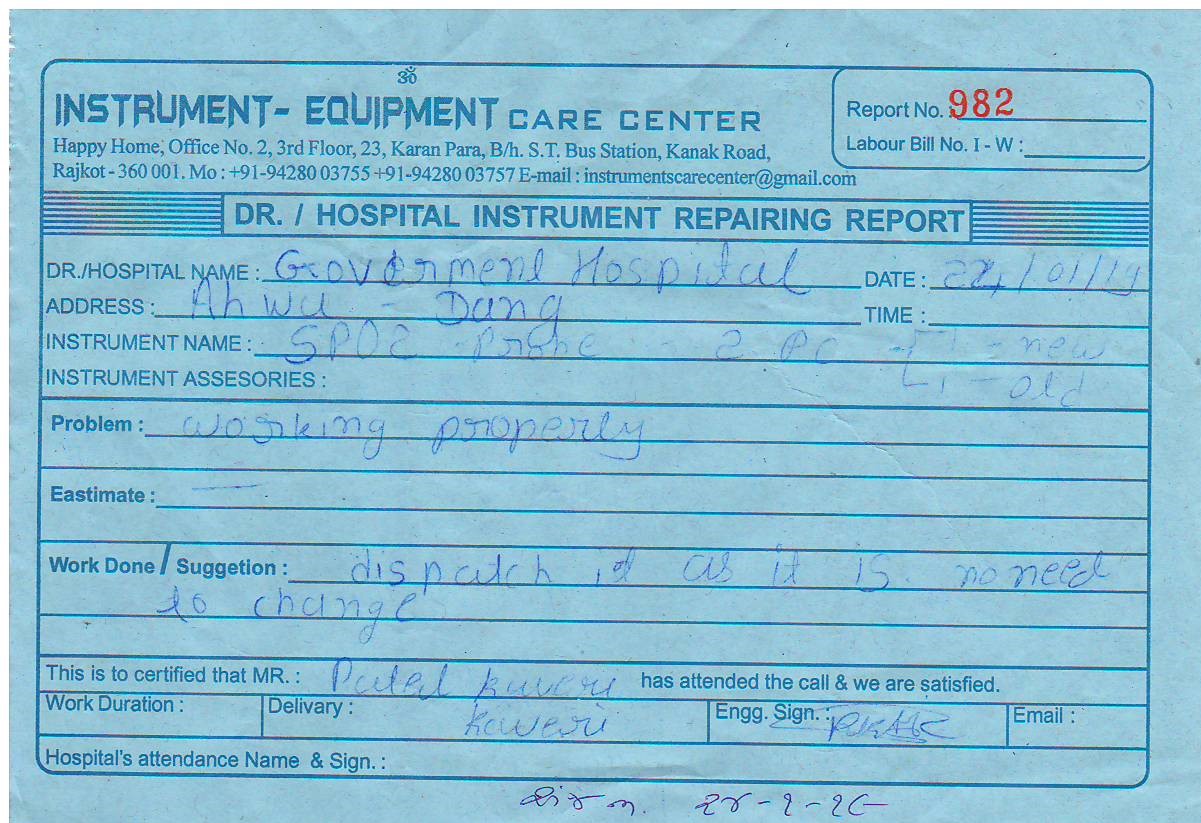 ॐ
INSTRUMENT- EQUIPMENT CARE CENTER
Happy Home, Office No. 2, 3rd Floor, 23, Karan Para, B/h. S.T. Bus Station, Kanak Road,
Rajkot - 360 001. Mo : +91-94280 03755 +91-94280 03757 E-mail : instrumentscarecenter@gmail.com
Report No. : 982
Labour Bill No. I - W :
DR. / HOSPITAL INSTRUMENT REPAIRING REPORT
DR./HOSPITAL NAME : Goverment Hospital DATE : 24/01/19
ADDRESS : Ahwa - Dang TIME :
INSTRUMENT NAME : SPO2 - Probe - 2 Pc - [ 1 - new
INSTRUMENT ASSESORIES : [ 1 - old
Problem : working properly
Eastimate : —
Work Done / Suggetion : dispatch it as it is no need
to change
This is to certified that MR. : Patel kaveri has attended the call & we are satisfied.
Work Duration : Delivary : kaveri Engg. Sign. : Email :
Hospital's attendance Name & Sign. :